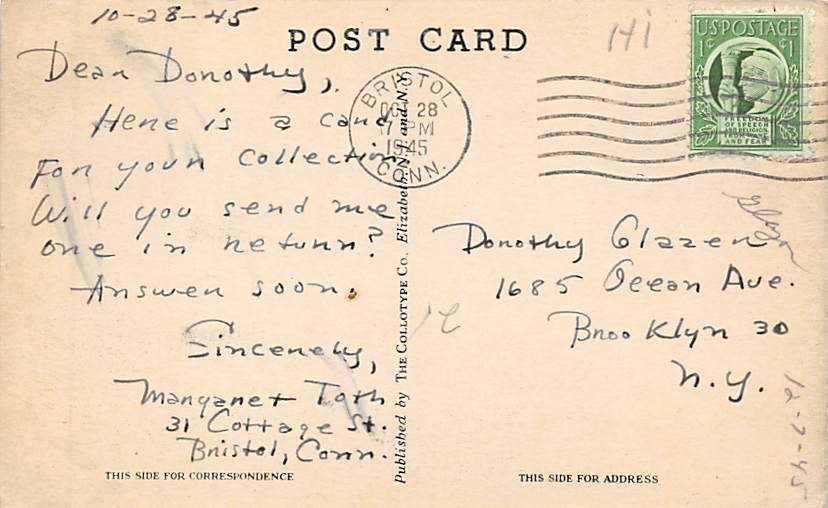 10-28-45
POST CARD
Hi
U.S. POSTAGE
1¢ 1
FREEDOM
OF SPEECH
AND RELIGION,
FROM WANT
AND FEAR
BRISTOL
OCT 28
7 PM
1945
CONN.
Dear Dorothy,
Here is a card
For your collection
Will you send me
one in return?
Answer soon.
Sincerely,
Margaret Toth
31 Cottage St.
Bristol, Conn.
THIS SIDE FOR CORRESPONDENCE
Published by THE COLLOTYPE CO., Elizabeth, N.J. and N.Y.
Dorothy Glazer
1685 Ocean Ave.
Brooklyn 30
N.Y.
12-7-45
THIS SIDE FOR ADDRESS